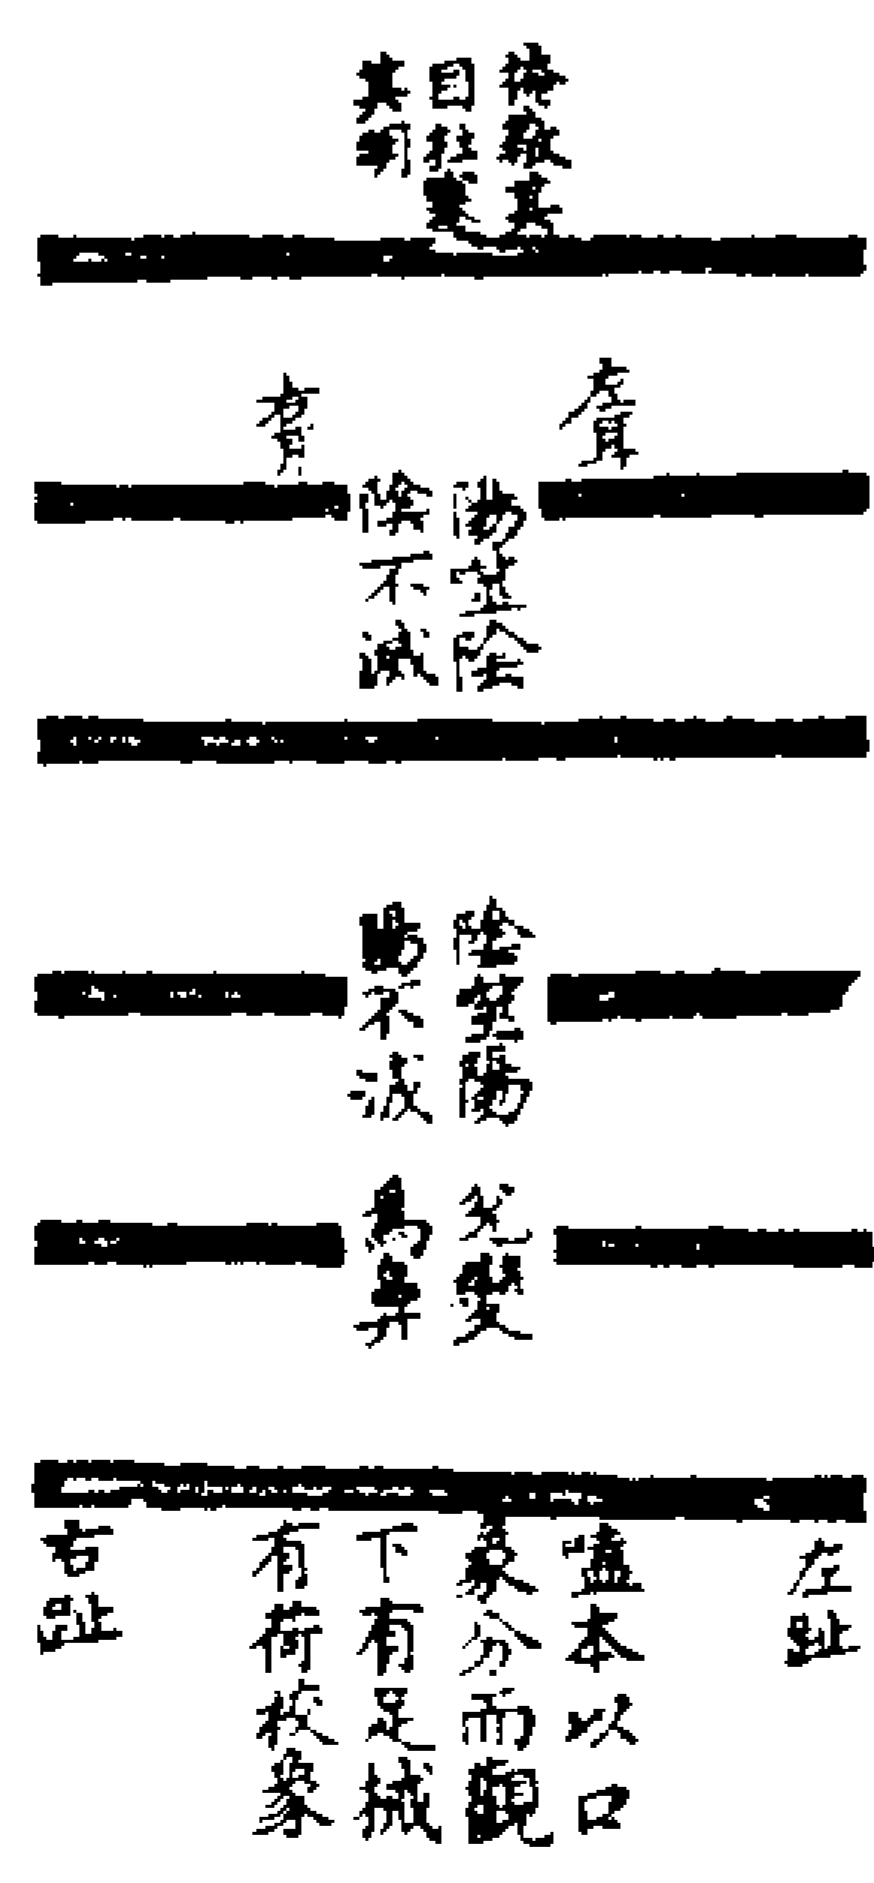 掩蔽其
目杜塞
其明
左耳
右耳
陽噬陰
陰不滅
陰噬陽
陽不滅
兌變
為鼻
左趾
嗑本以口
象分而觀
下有足械
有荷校象
右趾